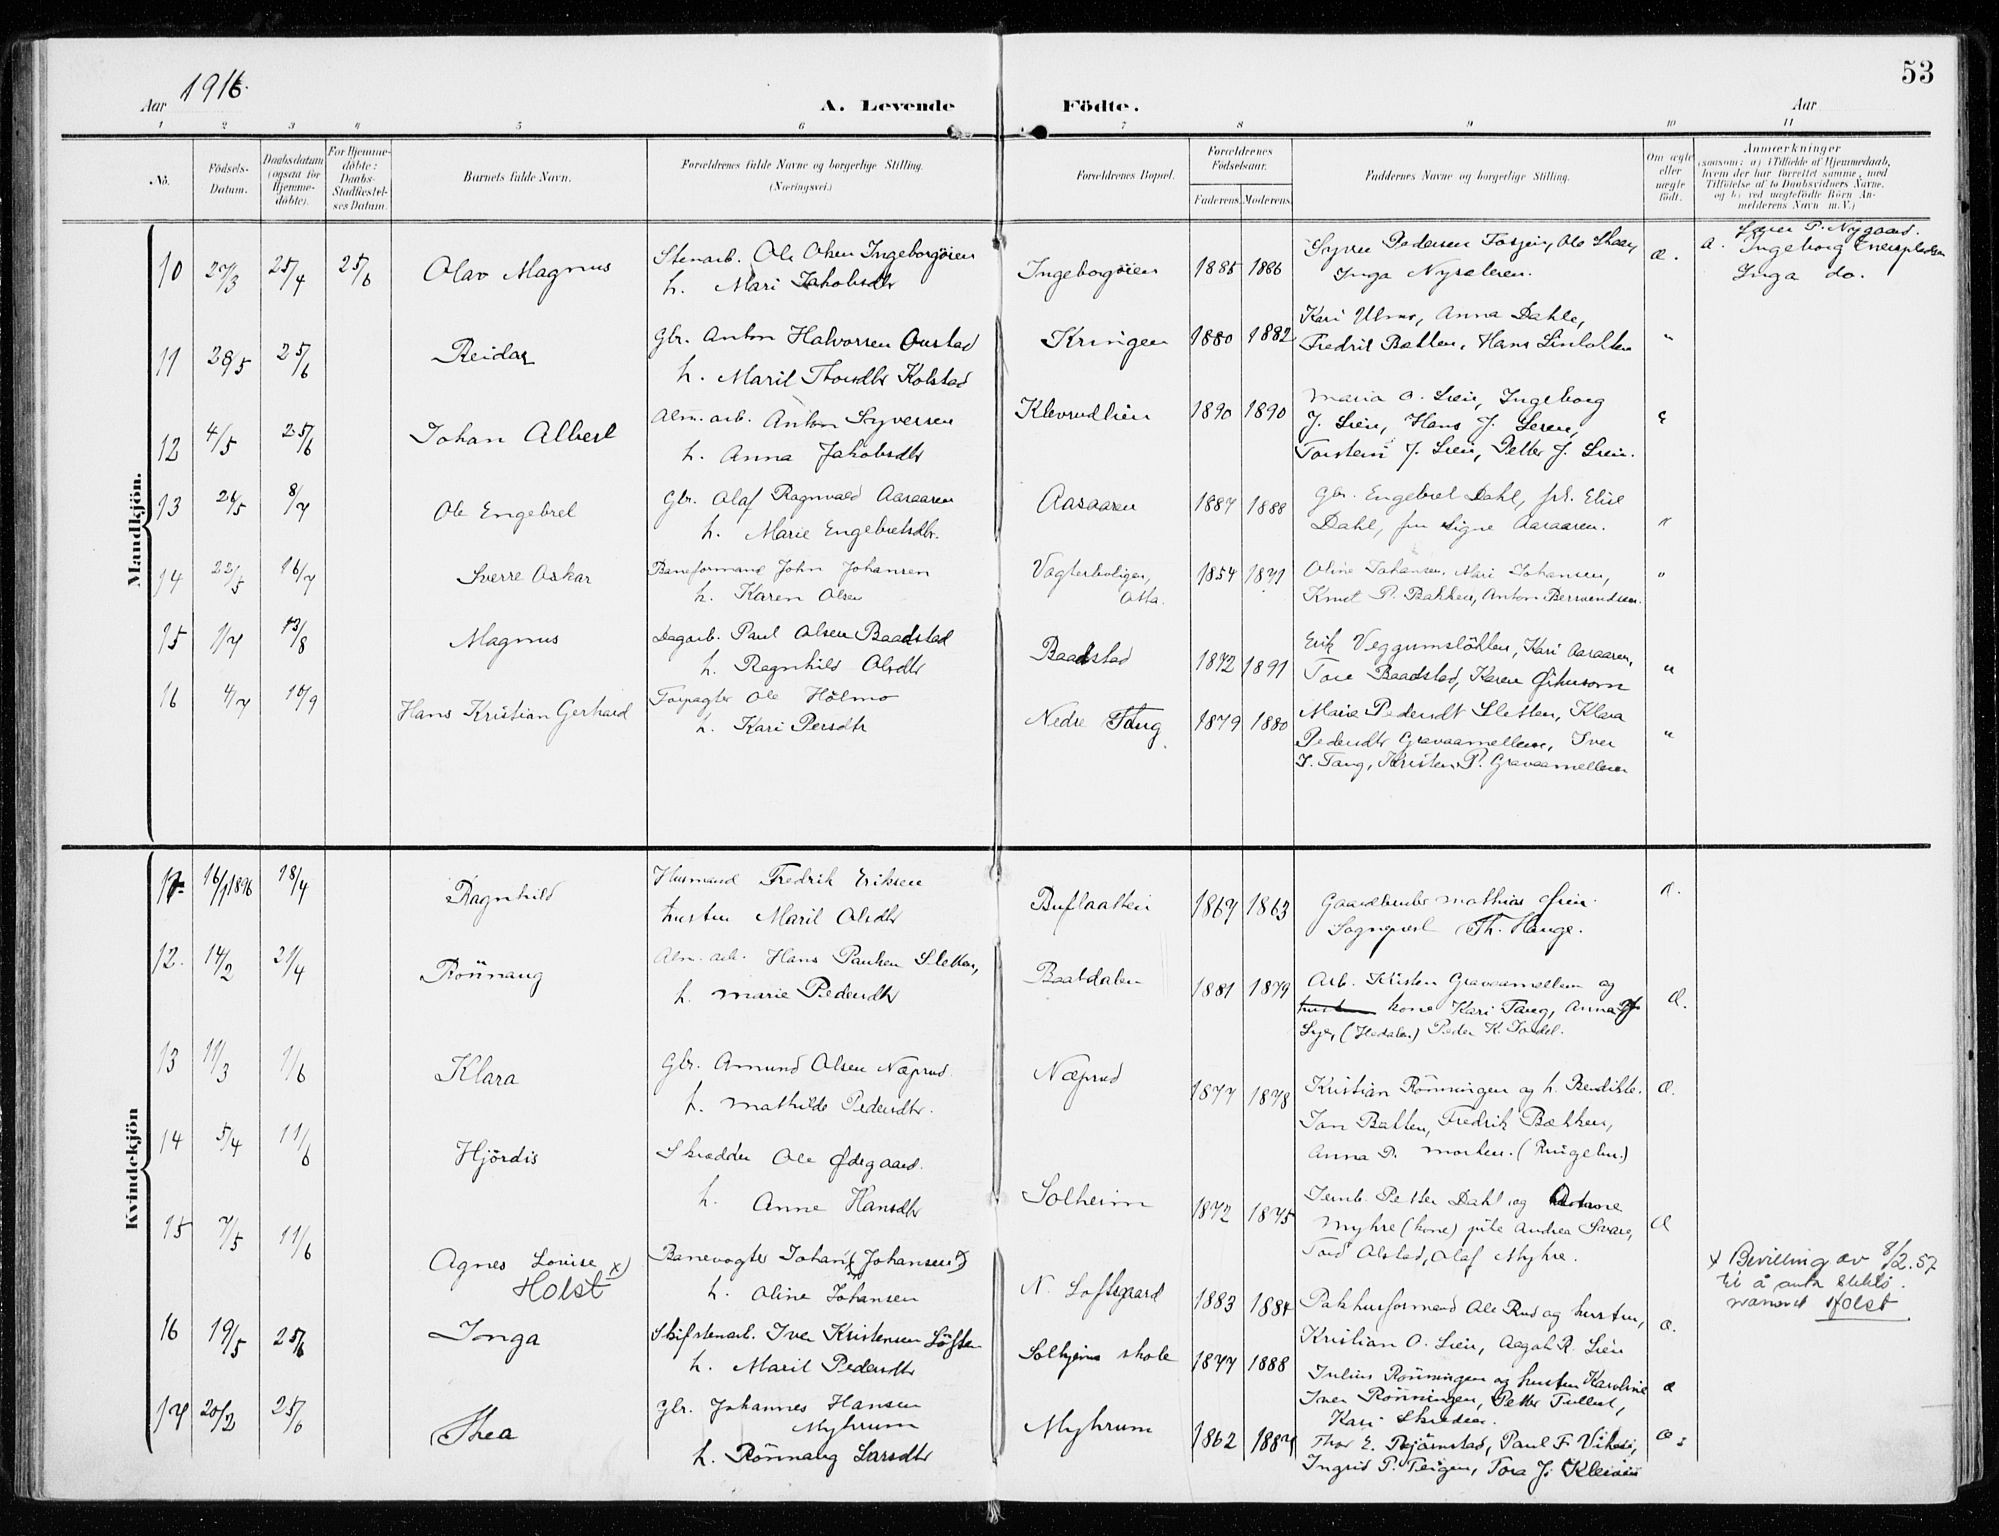 53
Aar 1916.
A. Levende Födte.
Aar
1 2 3 4 5 6 7 8 9 10 11
No.
Födsels-Datum.
Daabsdatum (ogsaa for Hjemme-döbte).
For Hjemme-döbte: Daabs-Stadfæstel-ses Datum.
Barnets fulde Navn.
Forældrenes fulde Navne og borgerlige Stilling.
(Næringsvei.)
Forældrenes Bopæl.
Forældrenes Födselsaar.
Faderens. Moderens.
Faddernes Navne og borgerlige Stilling.
Om ægte eller uægte födt.
Anmærkninger
(saasom: a) i Tilfælde af Hjemmedaab, hvem der har forrettet samme, med Tilföielse af to Daabsvidners Navne, og b) ved uægtefödte Börn An-melderens Navn m. V.)
Mandkjön.
10 27/3 25/4 25/6 Olav Magnus Stenarb. Ole Olsen Ingeborgöien
h. Mari Jakobsdtr Ingeborgöien 1885 1886 Syver Pedersen
Inga Nysæteren. æ. a. Lærer P. Nygaard.
Ingeborg
Inga do.
11 28/5 25/6 Reidar Gbr. Anton Halvorsen Onstad
h. Marit Thorsdtr Kolstad Kringen 1880 1882 Kari Ulmo, Anna Dahle,
Fredrik Bækken, Hans "
12 4/5 25/6 Johan Albert Alm. arb. Anton Syversen
h. Anna Jakobsdtr Klevrudlien 1890 1890 Maria O. Lien, Ingeborg
J. Lien, Hans J. Leren,
Torstein J. Lien, Petter J. Lien.
13 8/7 Ole Engebret Gbr. Olaf Ragnvald Aasaaren
h. Marie Engebretsdtr. Aasaaren 1887 1888 Gbr. Engebret Dahl, frk. Elise
Dahl, fru Signe Aasaaren. "
14 22/5 16/7 Sverre Oskar Baneformand John Johansen
h. Karen Olsen Vogterboligen,
Otta. 1854 1871 Oline Johansen, Mari Johansen,
Knut P. Bakken, Anton "
15 1/7 13/8 Magnus Dagarb. Paul Olsen Baadstad
h. Ragnhild Olsdtr Baadstad 1872 1891 Erik Veggumslökken, Kari Aasaaren,
Tore Baadstad, Karen "
16 4/7 Hans Kristian Gerhard Forpagter Ole Holmo
h. Kari Persdtr Nedre Tang 1879 1880 Marie Pedersdt Sletten, Klara
Pedersdtr Gravaamellem, Iver
I. Tang, Kristen P. Gravaamellem "
Kvindekjön
11 16/1 1896 18/4 Ragnhild Husmand Fredrik Eriksen
hustru Marit Olsdtr 1867 1863 Gaardbruker Mathias
Sogneprest Th. Hauge. æ.
12. 14/2 21/4 Rönnaug Alm. arb. Hans Paulsen Sletten,
h. Marie Pedersdtr Baatdalen 1881 1879 Arb. Kristen Gravaamellem og
kone Kari Tang, Anna
(Hedalen) Peder K. æ.
13 11/3 1/6 Klara Gbr. Amund Olsen Næprud.
h. Mathilde Pedersdtr. Næprud 1877 1878 Kristian Rönningen og h. Bendikte. æ.
14 5/4 11/6 Hjördis Skrædder Ole Ødegaard.
h. Anne Hansdtr Solheim 1872 1875 Jan Bakken, Fredrik Bækken,
Anna P. Morken. (Ringebu.)
15 7/5 11/6 Agnes Louise x)
Holst Banevogter Johan (Johansen)
h. Oline Johansen N. Loftsgaard 1883 1884 Jernb. Petter Dahl og
Myhre (kone) pike Andrea
Tord Olstad, Olaf Myhre. æ
x Bevilling av 8/2.57
til å anta slekts-
navnet Holst
16 19/5 25/6 Inga Skifstenarb. Iver Kristensen
h. Marit Pedersdtr Solhjem skole 1877 1888 Pakhusformand Ole Rud og hustru,
Kristian O. Lien, Aagot R. Lien æ.
17 20/2 25/6 Thea Gbr. Johannes Hansen
Myhrum
h. Rönnaug Larsdtr Myhrum 1862 Julius Rönningen og hustru Karoline
Iver Rönningen, Petter
Kari
Thor E. Bjørnstad, Paul F.
Ingrid P. Teigen, Tora J. æ